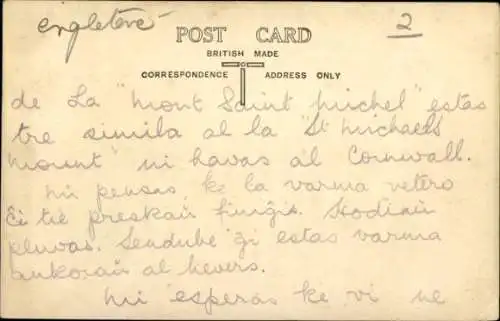 Engleterè 2
POST CARD
BRITISH MADE
CORRESPONDENCE ADDRESS ONLY
de La "Mont Saint Michel" estas
tre simila al la "St Michaels
Mount" ni havas al Cornwall.
Mi pensas ke la varma vetero
ĉi tie preskaŭ finiĝis. Hodiaŭ
pluvas. Sendube ĝi estas varma
ankoraŭ al
Mi esperas ke vi ne